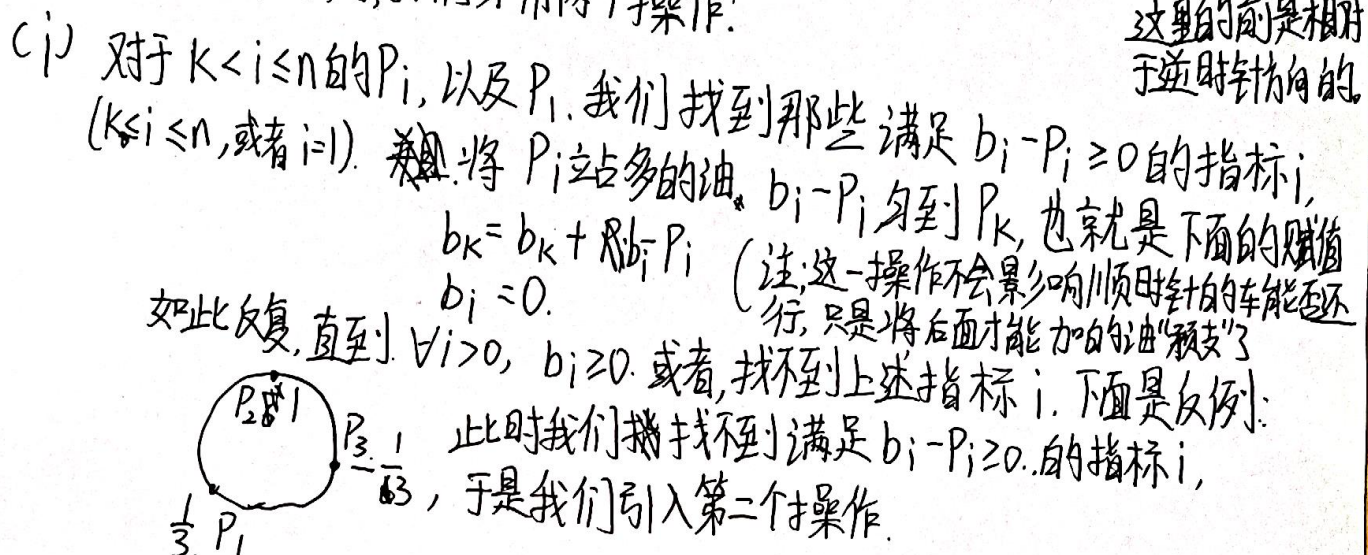 操作.
这里的前是相对
于逆时针方向的。
(i) 对于 K<i≤n的Pi, 以及 P1. 我们找到那些 满足 bi-Pi≥0的指标i,
(K≤i≤n,或者i=1). 将 Pi站多的油 bi-Pi 匀到 PK, 也就是 下面的赋值
bK=bK+bi-Pi (注:这一操作不会影响顺时针的车能否环
bi=0. 行, 只是将后面才能 加的油“预支”了
如此反复, 直到 ∀i>0, bi≥0. 或者, 找不到上述指标 i. 下面是反例:
P2 1
P3 -1/3 此时我们找不到满足 bi-Pi≥0..的指标i,
, 于是我们引入第二个操作.
1/3 P1